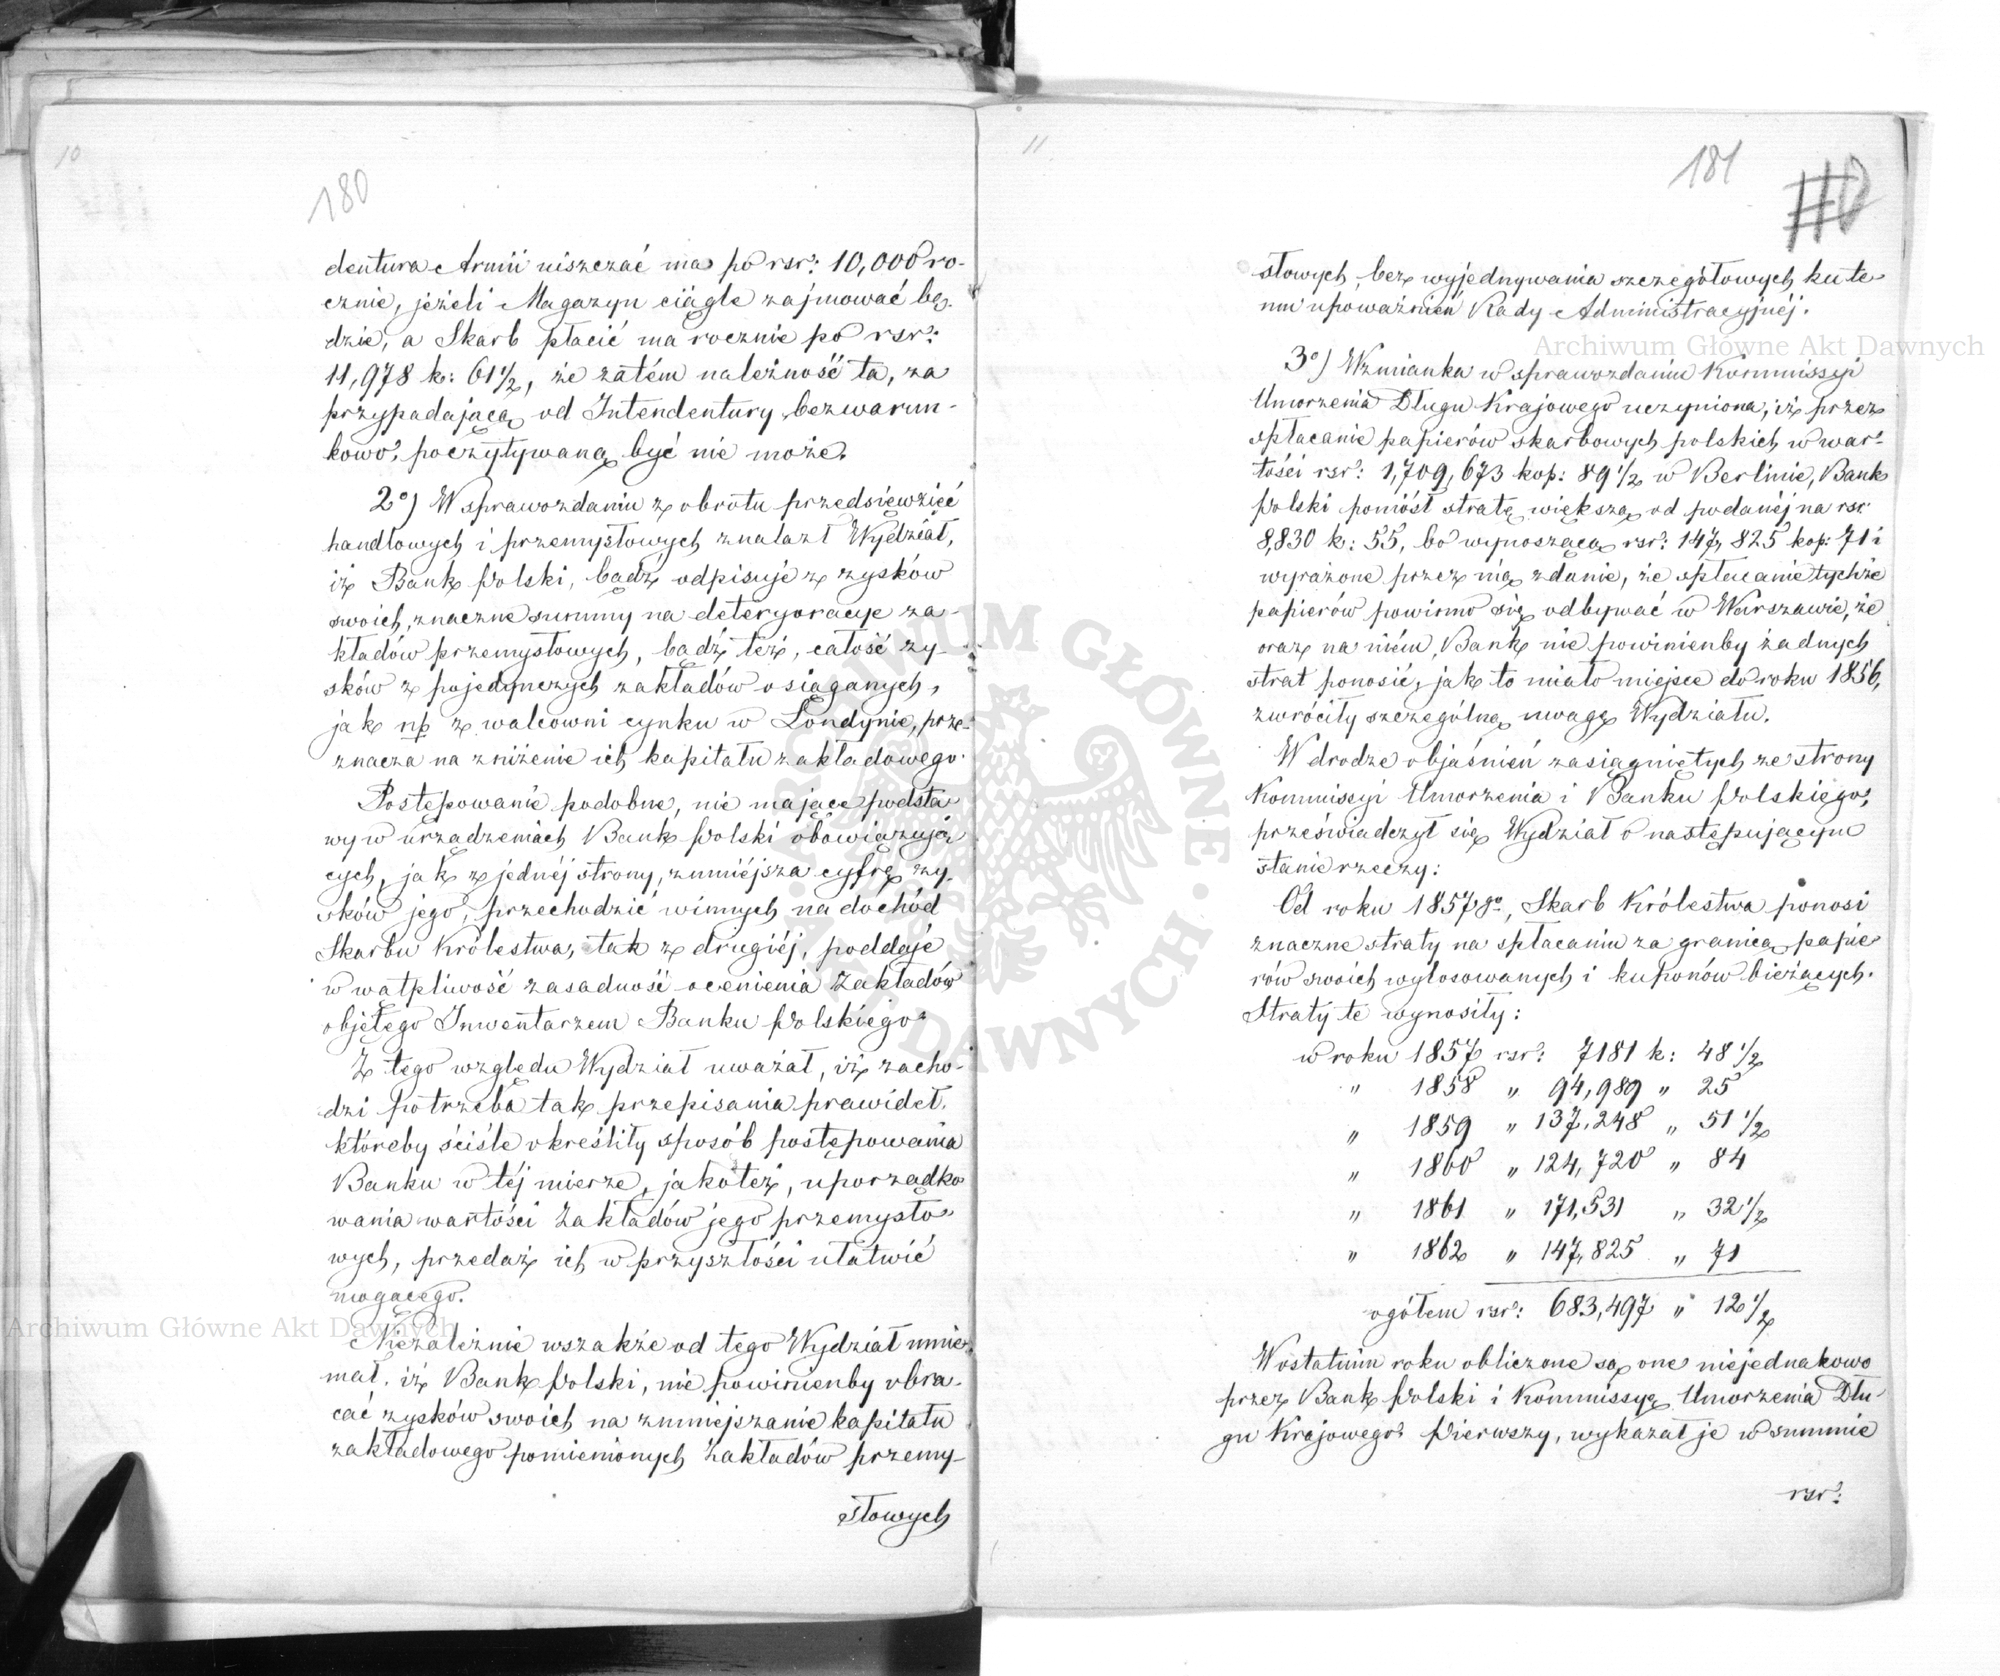 10
180
dentura Armii uiszczać ma po rsr: 10,000 ro-
cznie, jeżeli Magazyn ciągle zajmować bę-
dzie, a Skarb płacić ma rocznie po rsr:
11,978 k: 61 1/2, że zatém należność ta, za
przypadającą od Intendentury bezwarun-
kowo, poczytywaną być nie może.
2o) W sprawozdaniu z obrotu przedsięwzięć
handlowych i przemysłowych znalazł Wydział,
iż Bank Polski, bądź odpisuje z zysków
swoich, znaczne summy na deteryoracye za-
kładów przemysłowych, bądź też, całość zy-
sków z pojedynczych zakładów osiąganych,
jak np z walcowni cynku w Londynie, prze-
znacza na zniżenie ich kapitału zakładowego.
Postępowanie podobne, nie mające podsta-
wy w urządzeniach Bank Polski obowiązują-
cych, jak z jednéj strony, zmniéjsza cyfrę zy-
sków jego, przechodzić winnych na dochód
Skarbu Królestwa, tak z drugiéj, poddaje
w wątpliwość zasadność ocenienia Zakładów
objętego Inwentarzem Banku Polskiego.
Z tego względu Wydział uważał, iż zacho-
dzi potrzeba tak przepisania prawideł,
któreby ściśle określiły sposób postępowania
Banku w téj mierze, jakotéż, uporządko-
wania wartości Zakładów jego przemysło-
wych, przedaż ich w przyszłości ułatwić
mogącego.
Niezależnie wszakże od tego Wydział mnie-
mał, iż Bank Polski, nie powinienby obra-
cać zysków swoich na zmniejszanie kapitału
zakładowego pomienionych Zakładów przemy-
słowych
11
181
słowych, bez wyjednywania szczegółowych ku te-
mu upoważnień Rady Administracyjnéj.
3o) Wzmianka w sprawozdaniu Kommissyi
Umorzenia Długu Krajowego uczyniona, iż przez
spłacanie papierów skarbowych polskich w war-
tości rsr: 1,709,673 kop: 89 1/2 w Berlinie, Bank
Polski poniósł stratę większą od podanéj na rsr
8,830 k: 55, bo wynoszącą rsr: 147,825 kop: 71 i
wyrażone przez nią zdanie, że spłacanie tychże
papierów powinno się odbywać w Warszawie, że
oraz na niém, Bank nie powinienby żadnych
strat ponosić, jak to miało miejsce do roku 1856,
zwróciły szczególną uwagę Wydziału.
W drodze objaśnień zasiągniętych ze strony
Kommissyi Umorzenia i Banku Polskiego,
przeświadczył się Wydział o następującym
stanie rzeczy:
Od roku 1857go, Skarb Królestwa ponosi
znaczne straty na spłacaniu za granicą papie-
rów swoich wylosowanych i kuponów bieżących.
Straty te wynosiły:
w roku 1857 rsr: 7181 k: 48 1/2
" 1858 " 94,989 " 25
" 1859 " 137,248 " 51 1/2
" 1860 " 124,720 " 84
" 1861 " 171,531 " 32 1/2
" 1862 " 147,825 " 71
ogółem rsr: 683,497 " 12 1/2
W ostatnim roku obliczone są one niejednakowo
przez Bank Polski i Kommissyę Umorzenia Dłu-
gu Krajowego. Pierwszy, wykazał je w summie
rsr:
Archiwum Główne Akt Dawnych
Archiwum Główne Akt Dawnych
ARCHIWUM GŁÓWNE AKT DAWNYCH